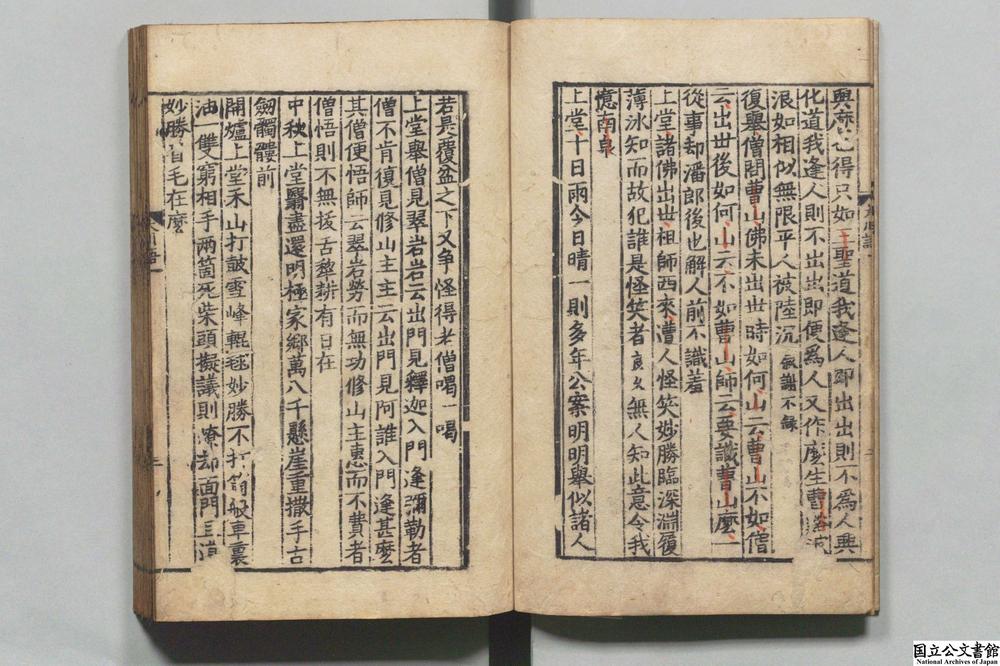 興⿱化得只如二聖道我逢人即出出則不為人興
化道我逢人則不出出即便為人又作麼生曹
浪如相似無限平人被陸沉 叙謝不錄
復舉僧問曹山佛未出世時如何山云曹山不如僧
云出世後如何山云不如曹山師云要識曹山麼一
從事却潘郎後也解人前不識羞
上堂諸佛出世祖師西來遭人怪笑妙勝臨深淵履
薄泳知而故犯誰是怪笑者 良久 無人知此意令我
憶南泉
上堂十日雨今日晴一則多年公案明明舉似諸人
若是覆盆之下又争怪得老僧喝一喝
上堂舉僧見翠岩岩云出門見釋迦入門逢彌勒者
僧不肯復見修山主主云出門見阿誰入門逢甚麼
其僧便悟師云翠岩勞而無功修山主惠而不費者
僧悟則不無拔舌犂耕有日在
中秋上堂翳盡還明極家鄉萬八千懸崖重撒手古
劒髑髏前
開爐上堂禾山打皷雪峰輥毬妙勝不打者般車裏
油一雙窮相手兩箇死柴頭擬議則燎却面門
妙勝眉毛在麼
国立公文書館
National Archives of Japan